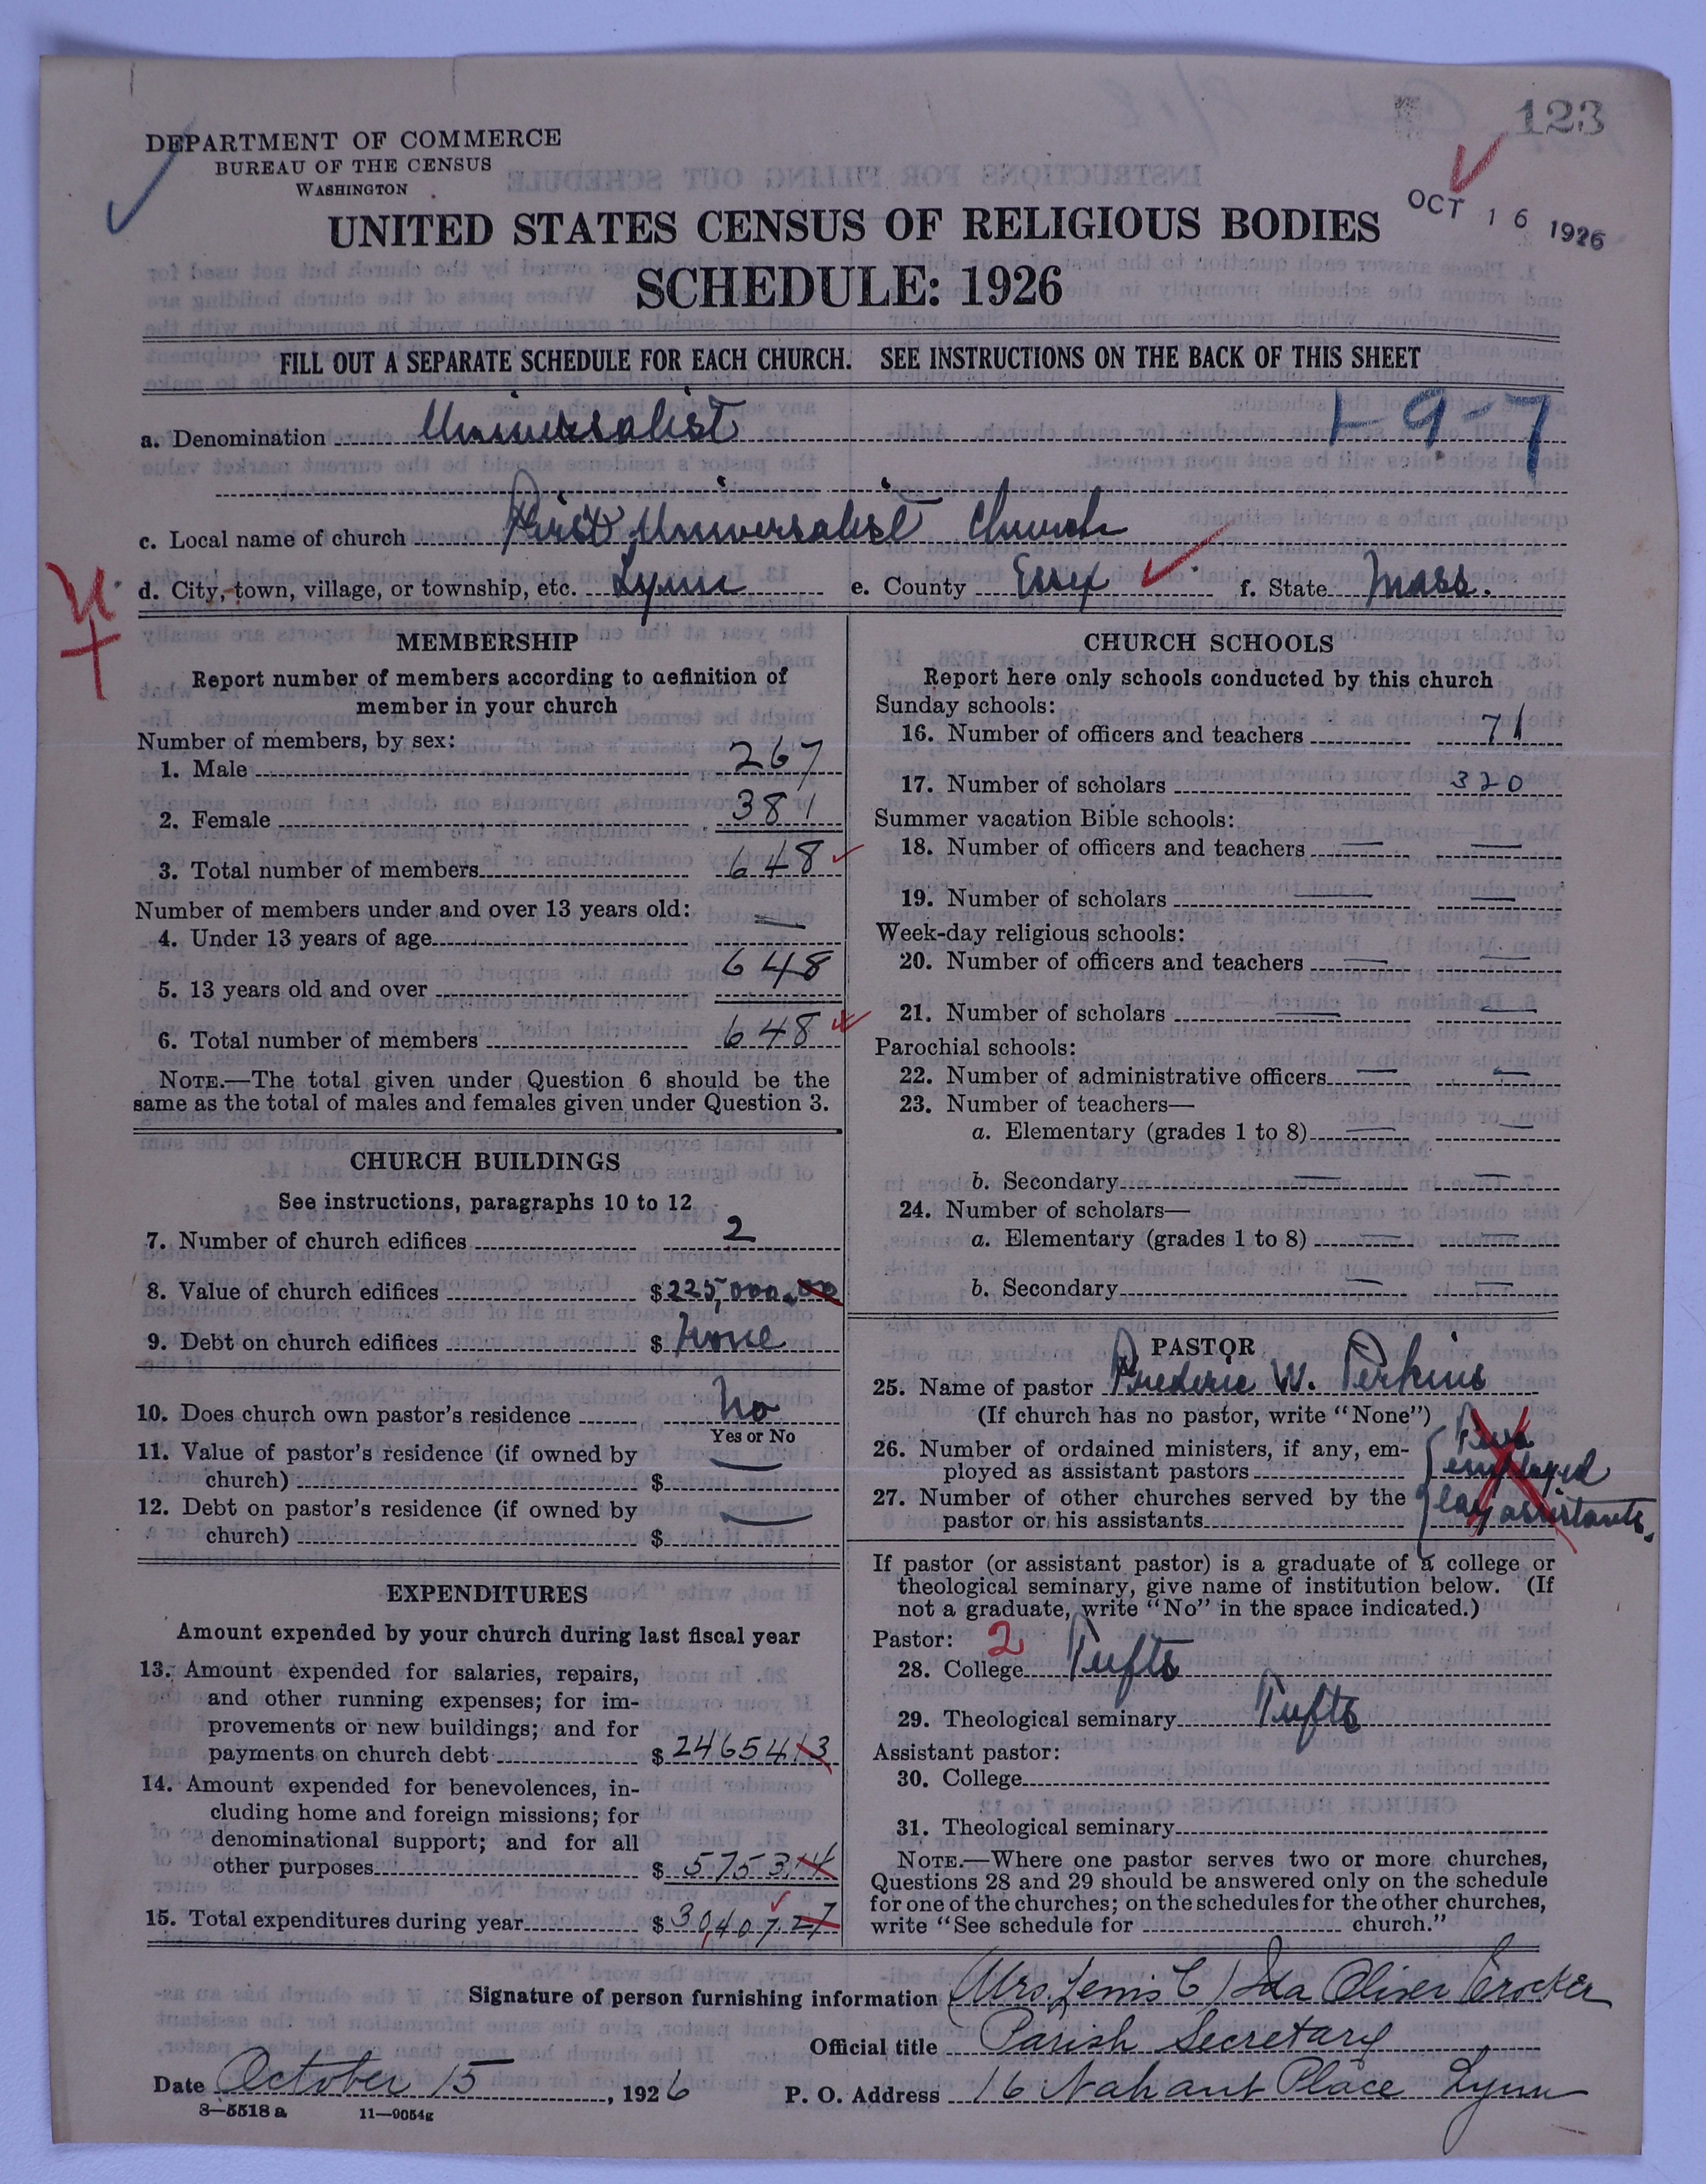 123
DEPARTMENT OF COMMERCE
BUREAU OF THE CENSUS
WASHINGTON
OCT 16 1926
UNITED STATES CENSUS OF RELIGIOUS BODIES
SCHEDULE: 1926
FILL OUT A SEPARATE SCHEDULE FOR EACH CHURCH. SEE INSTRUCTIONS ON THE BACK OF THIS SHEET
1-9-7
a. Denomination Universalist
c. Local name of church First Universalist Church
d. City, town, village, or township, etc. Lynn e. County Essex f. State Mass.
MEMBERSHIP
Report number of members according to definition of
member in your church
Number of members, by sex:
1. Male 267
2. Female 381
3. Total number of members 648
Number of members under and over 13 years old:
4. Under 13 years of age —
5. 13 years old and over 648
6. Total number of members 648
NOTE.—The total given under Question 6 should be the
same as the total of males and females given under Question 3.
CHURCH BUILDINGS
See instructions, paragraphs 10 to 12
7. Number of church edifices 2
8. Value of church edifices $225,000.00
9. Debt on church edifices $ None
10. Does church own pastor's residence No
Yes or No
11. Value of pastor's residence (if owned by
church) $ —
12. Debt on pastor's residence (if owned by
church) $ —
EXPENDITURES
Amount expended by your church during last fiscal year
13. Amount expended for salaries, repairs,
and other running expenses; for im-
provements or new buildings; and for
payments on church debt $ 24654 13
14. Amount expended for benevolences, in-
cluding home and foreign missions; for
denominational support; and for all
other purposes $ 5753 14
15. Total expenditures during year $ 30,407 27
CHURCH SCHOOLS
Report here only schools conducted by this church
Sunday schools:
16. Number of officers and teachers 71
17. Number of scholars 320
Summer vacation Bible schools:
18. Number of officers and teachers — —
19. Number of scholars — —
Week-day religious schools:
20. Number of officers and teachers — —
21. Number of scholars — —
Parochial schools:
22. Number of administrative officers — —
23. Number of teachers—
a. Elementary (grades 1 to 8) — —
b. Secondary — —
24. Number of scholars—
a. Elementary (grades 1 to 8) — —
b. Secondary — —
PASTOR
25. Name of pastor Frederic W. Perkins
(If church has no pastor, write "None")
26. Number of ordained ministers, if any, em-
ployed as assistant pastors employed
27. Number of other churches served by the lay assistants.
pastor or his assistants
If pastor (or assistant pastor) is a graduate of a college or
theological seminary, give name of institution below. (If
not a graduate, write "No" in the space indicated.)
Pastor: 2
28. College Tufts
29. Theological seminary Tufts
Assistant pastor:
30. College
31. Theological seminary
NOTE.—Where one pastor serves two or more churches,
Questions 28 and 29 should be answered only on the schedule
for one of the churches; on the schedules for the other churches,
write "See schedule for church."
Signature of person furnishing information (Mrs. Lewis C) Ida Oliver Crocker
Official title Parish Secretary
Date October 15, 1926 P. O. Address 16 Nahant Place Lynn
8—5518 a 11—9054g